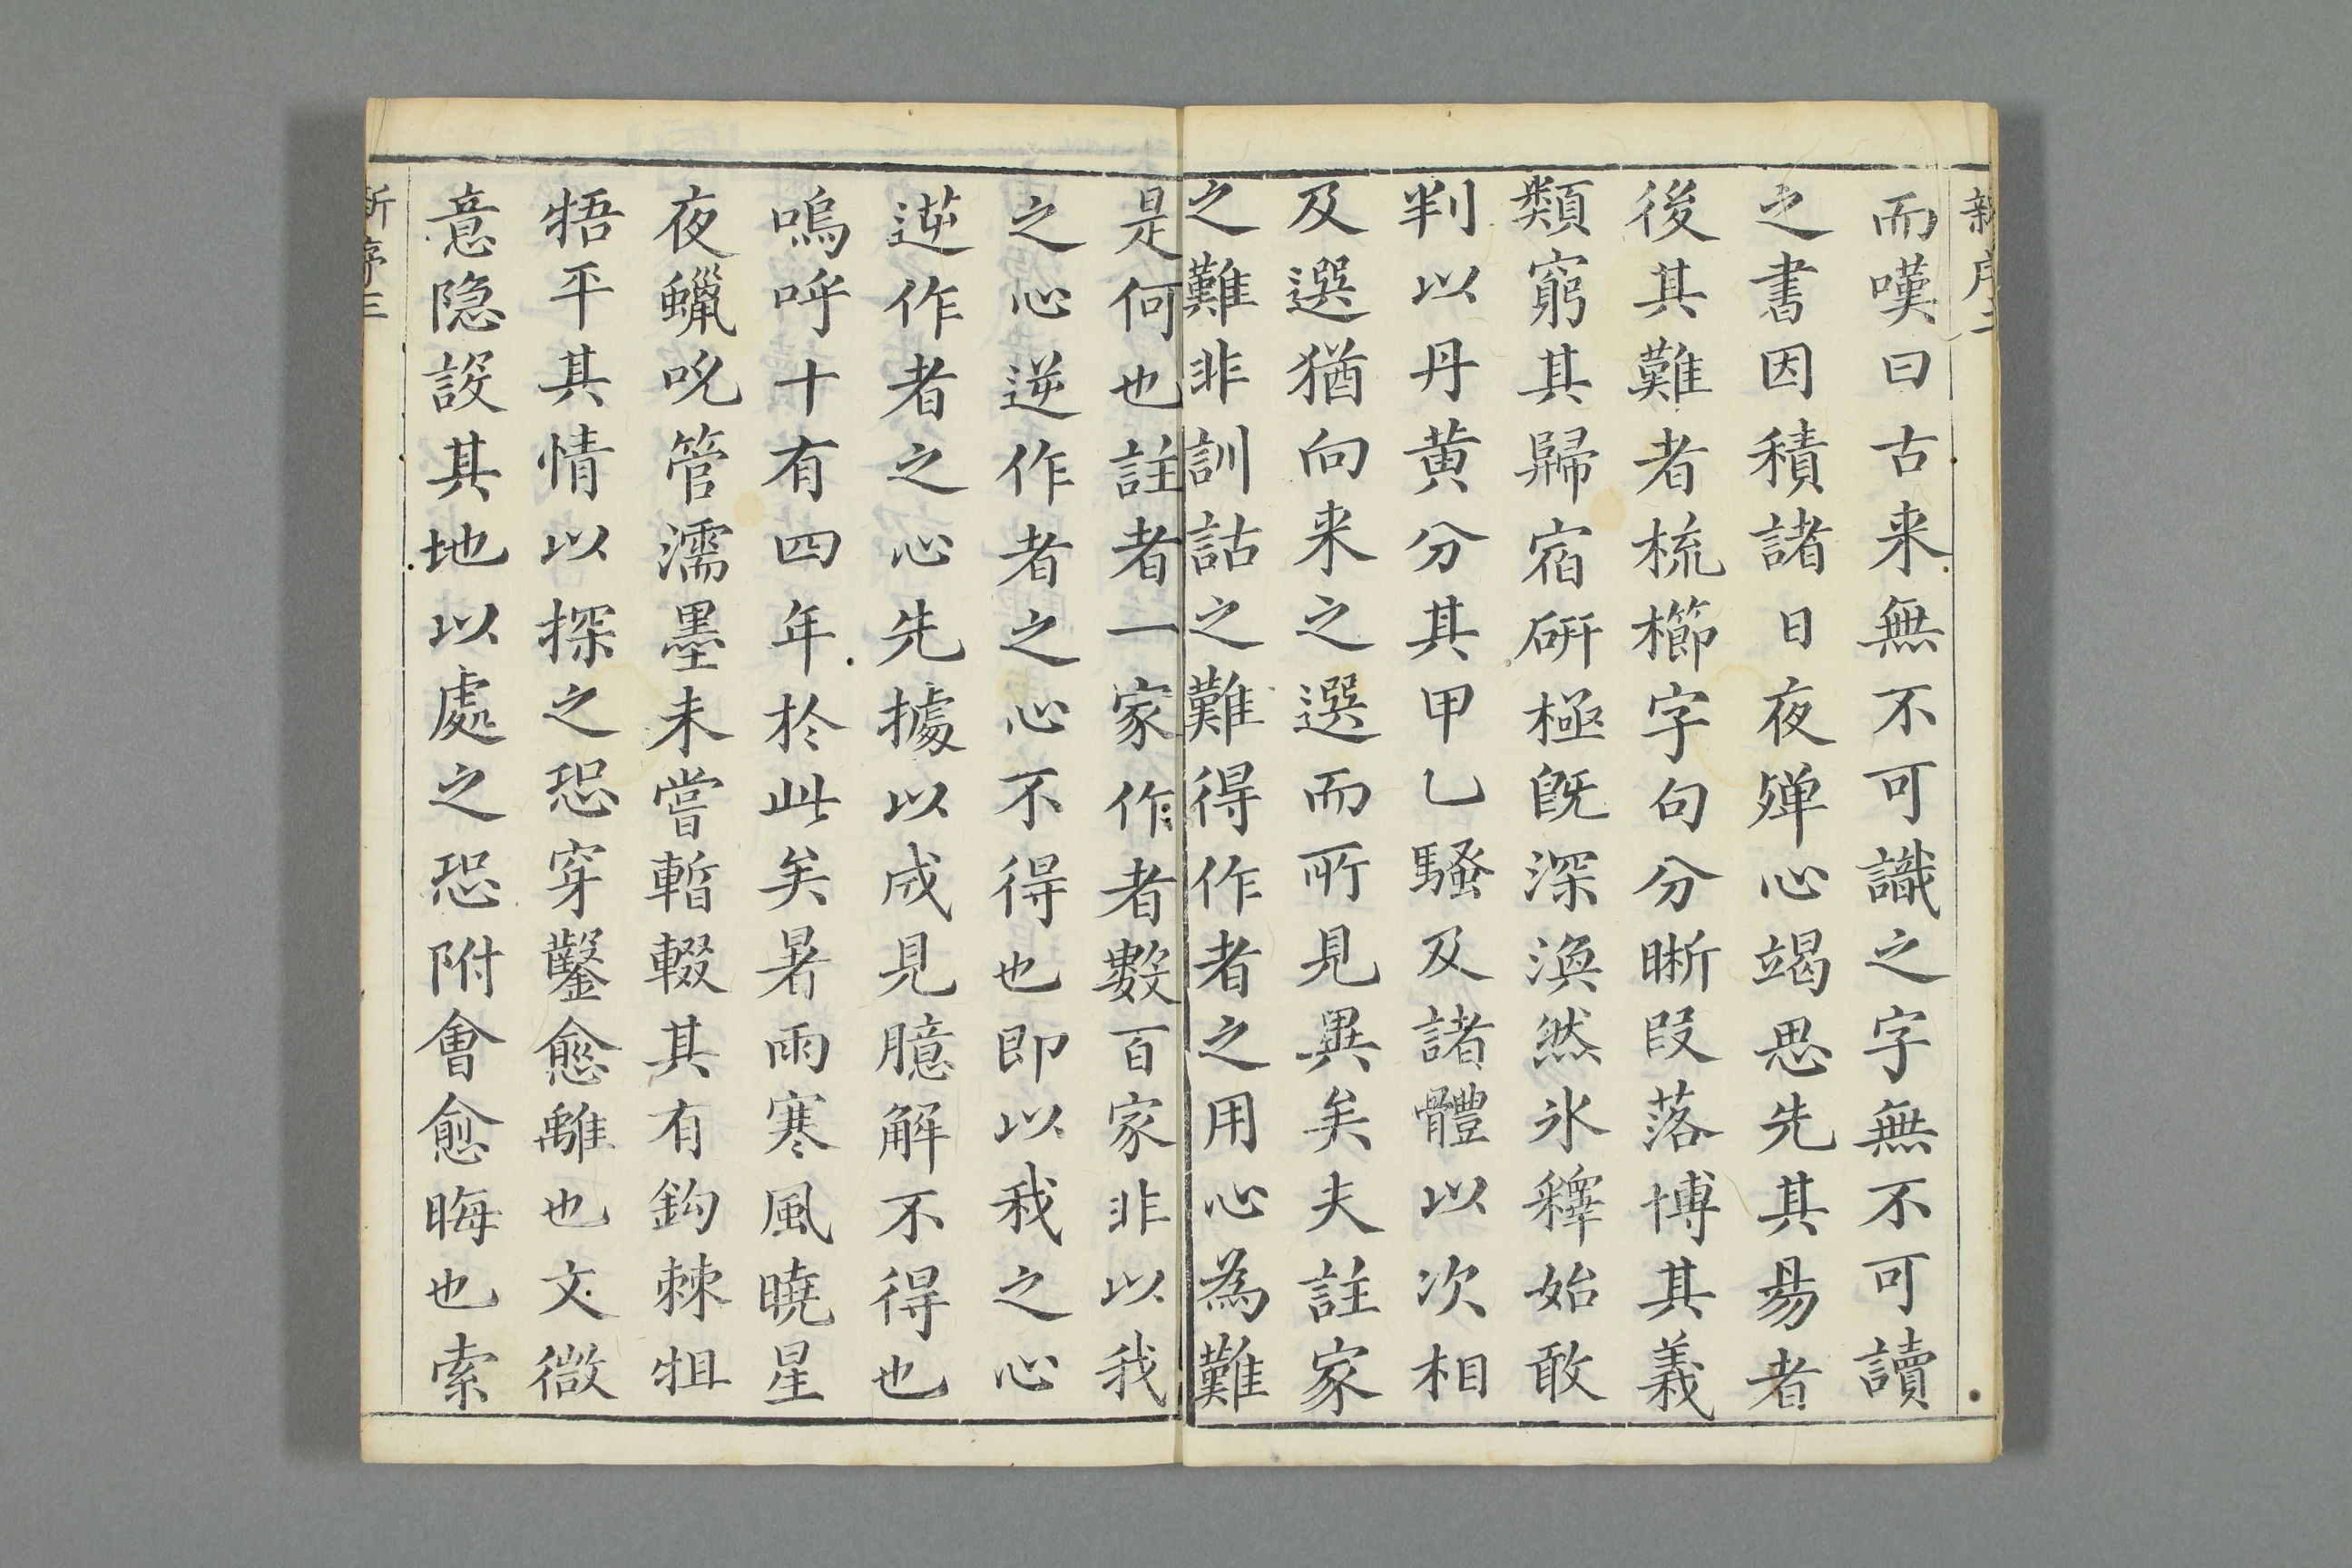 新序二
而嘆曰古来無不可識之字無不可讀
之書因積諸日夜殫心竭思先其昜者
後其難者梳櫛字句分晣段落博其義
類窮其歸宿研極旣深渙然氷釋始敢
判以丹黃分其甲乙騷及諸體以次相
及選猶向来之選而所見異矣夫註家
之難非訓詁之難得作者之用心為難
是何也註者一家作者數百家非以我
之心逆作者之心不得也即以我之心
逆作者之心先據以成見臆解不得也
嗚呼十有四年於此矣暑雨寒風曉星
夜蠟吮管濡墨未嘗暫輟其有鈎棘牴
牾平其情以探之恐穿鑿愈離也文微
意隐設其地以處之恐附會愈晦也索
新序三